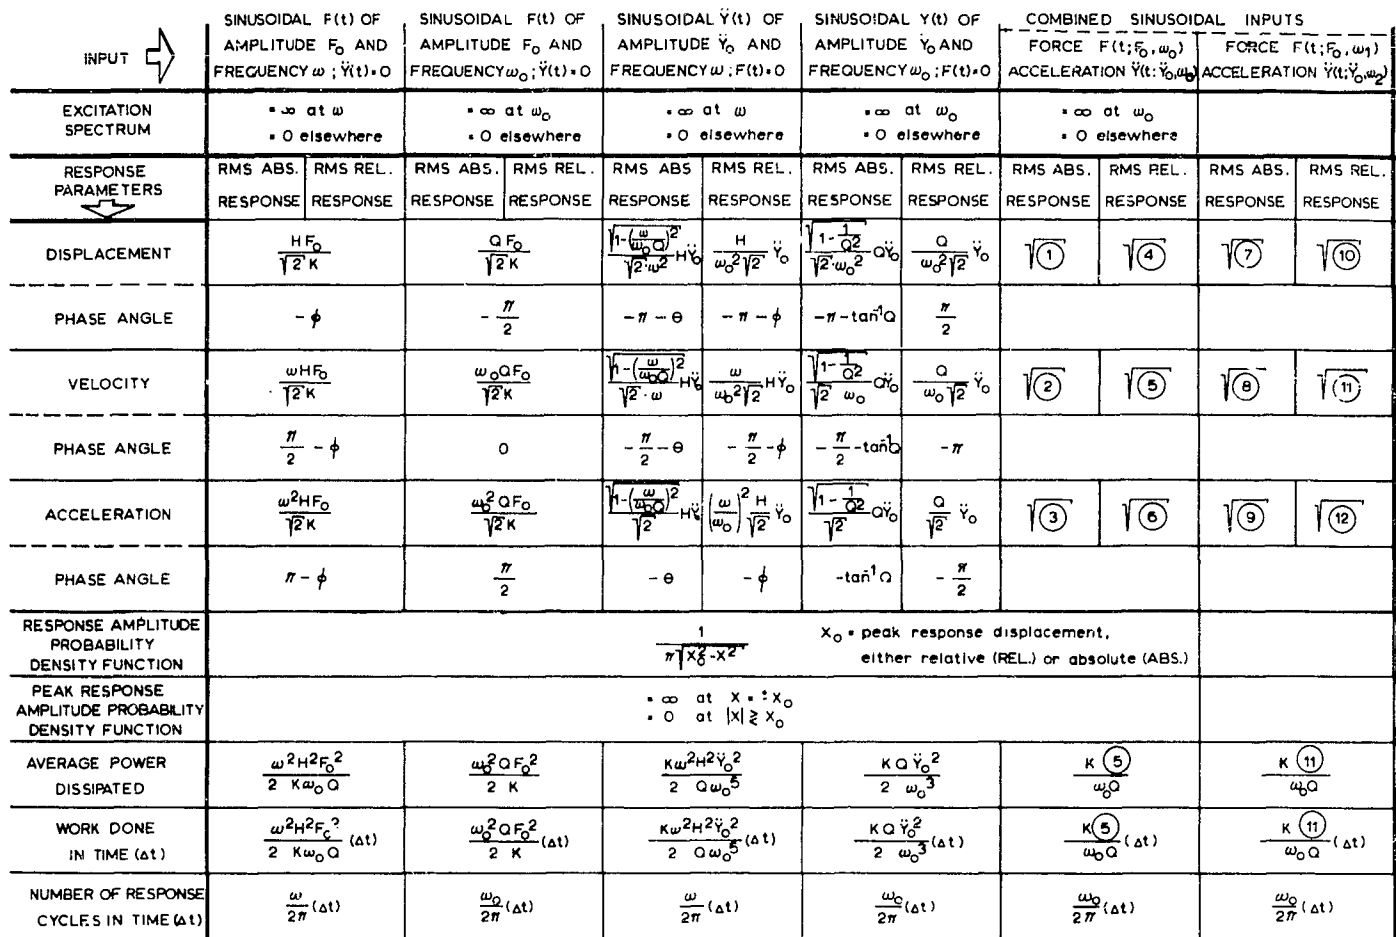 INPUT
SINUSOIDAL F(t) OF AMPLITUDE F₀ AND FREQUENCY ω ; Ÿ(t)=0
SINUSOIDAL F(t) OF AMPLITUDE F₀ AND FREQUENCY ω₀ ; Ÿ(t)=0
SINUSOIDAL Ÿ(t) OF AMPLITUDE Ÿ₀ AND FREQUENCY ω ; F(t)=0
SINUSOIDAL Y(t) OF AMPLITUDE Ÿ₀ AND FREQUENCY ω₀ ; F(t)=0
COMBINED SINUSOIDAL INPUTS
FORCE F(t;F₀,ω₀) ACCELERATION Ÿ(t;Ÿ₀,ω₀)
FORCE F(t;F₀,ω₁) ACCELERATION Ÿ(t;Ÿ₀,ω₂)
EXCITATION SPECTRUM
= ∞ at ω
= 0 elsewhere
= ∞ at ω₀
= 0 elsewhere
= ∞ at ω
= 0 elsewhere
= ∞ at ω₀
= 0 elsewhere
= ∞ at ω₀
= 0 elsewhere
RESPONSE PARAMETERS
RMS ABS. RESPONSE RMS REL. RESPONSE
RMS ABS. RESPONSE RMS REL. RESPONSE
RMS ABS RESPONSE RMS REL. RESPONSE
RMS ABS. RESPONSE RMS REL. RESPONSE
RMS ABS. RESPONSE RMS REL. RESPONSE
RMS ABS. RESPONSE RMS REL. RESPONSE
DISPLACEMENT
HF₀/(√2 K)
QF₀/(√2 K)
(√(1-(ω/(ω₀Q))²)/(√2·ω²)) HŸ₀
(H/(ω₀²√2)) Ÿ₀
(√(1-1/Q²)/(√2·ω₀²)) QŸ₀
(Q/(ω₀²√2)) Ÿ₀
√① √④ √⑦ √⑩
PHASE ANGLE
-ϕ
-π/2
-π-θ
-π-ϕ
-π-tan⁻¹Q
π/2
VELOCITY
ωHF₀/(√2 K)
ω₀QF₀/(√2 K)
(√(1-(ω/(ω₀Q))²)/(√2·ω)) HŸ₀
(ω/(ω₀²√2)) HŸ₀
(√(1-1/Q²)/(√2 ω₀)) QŸ₀
(Q/(ω₀√2)) Ÿ₀
√② √⑤ √⑧ √⑪
PHASE ANGLE
π/2-ϕ
0
-π/2-θ
-π/2-ϕ
-π/2-tan⁻¹Q
-π
ACCELERATION
ω²HF₀/(√2 K)
ω₀²QF₀/(√2 K)
(√(1-(ω/(ω₀Q))²)/√2) HŸ₀
(ω/ω₀)² (H/√2) Ÿ₀
(√(1-1/Q²)/√2) QŸ₀
(Q/√2) Ÿ₀
√③ √⑥ √⑨ √⑫
PHASE ANGLE
π-ϕ
π/2
-θ
-ϕ
-tan⁻¹Q
-π/2
RESPONSE AMPLITUDE PROBABILITY DENSITY FUNCTION
1/(π√(X₀²-X²))
X₀ = peak response displacement,
either relative (REL.) or absolute (ABS.)
PEAK RESPONSE AMPLITUDE PROBABILITY DENSITY FUNCTION
= ∞ at X = ±X₀
= 0 at |X| ≷ X₀
AVERAGE POWER DISSIPATED
ω²H²F₀²/(2 Kω₀Q)
ω₀²QF₀²/(2 K)
Kω²H²Ÿ₀²/(2 Qω₀⁵)
KQŸ₀²/(2 ω₀³)
K⑤/(ω₀Q)
K⑪/(ω₀Q)
WORK DONE IN TIME (Δt)
ω²H²F₀²/(2 Kω₀Q) (Δt)
ω₀²QF₀²/(2 K) (Δt)
Kω²H²Ÿ₀²/(2 Qω₀⁵) (Δt)
KQŸ₀²/(2 ω₀³) (Δt)
K⑤/(ω₀Q) (Δt)
K⑪/(ω₀Q) (Δt)
NUMBER OF RESPONSE CYCLES IN TIME (Δt)
ω/2π (Δt)
ω₀/2π (Δt)
ω/2π (Δt)
ω₀/2π (Δt)
ω₀/2π (Δt)
ω₀/2π (Δt)